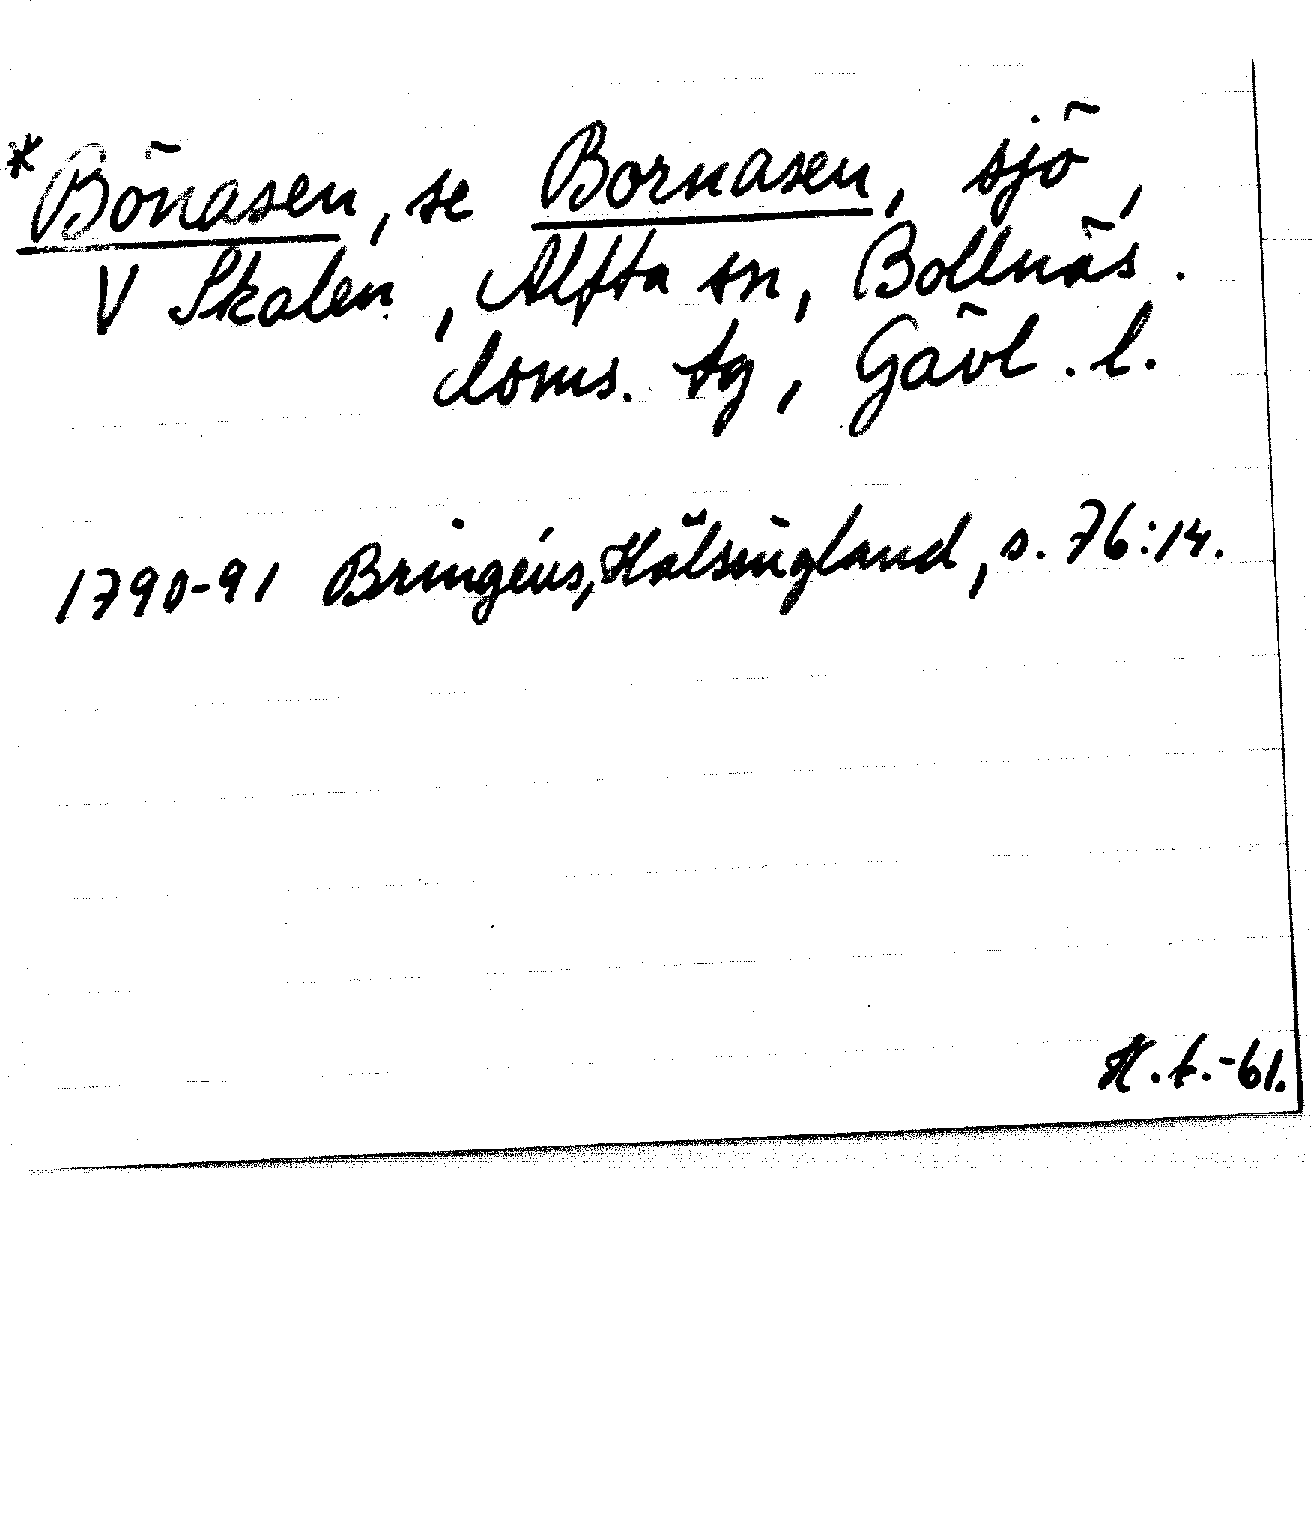 *Bönasen, se Bornasen, sjö,
V Skalen, Alfta sn, Bollnäs.
doms. tg, Gävl. l.
1790-91 Bringéus, Hälsingland, s. 76:14.
H.f.-61.